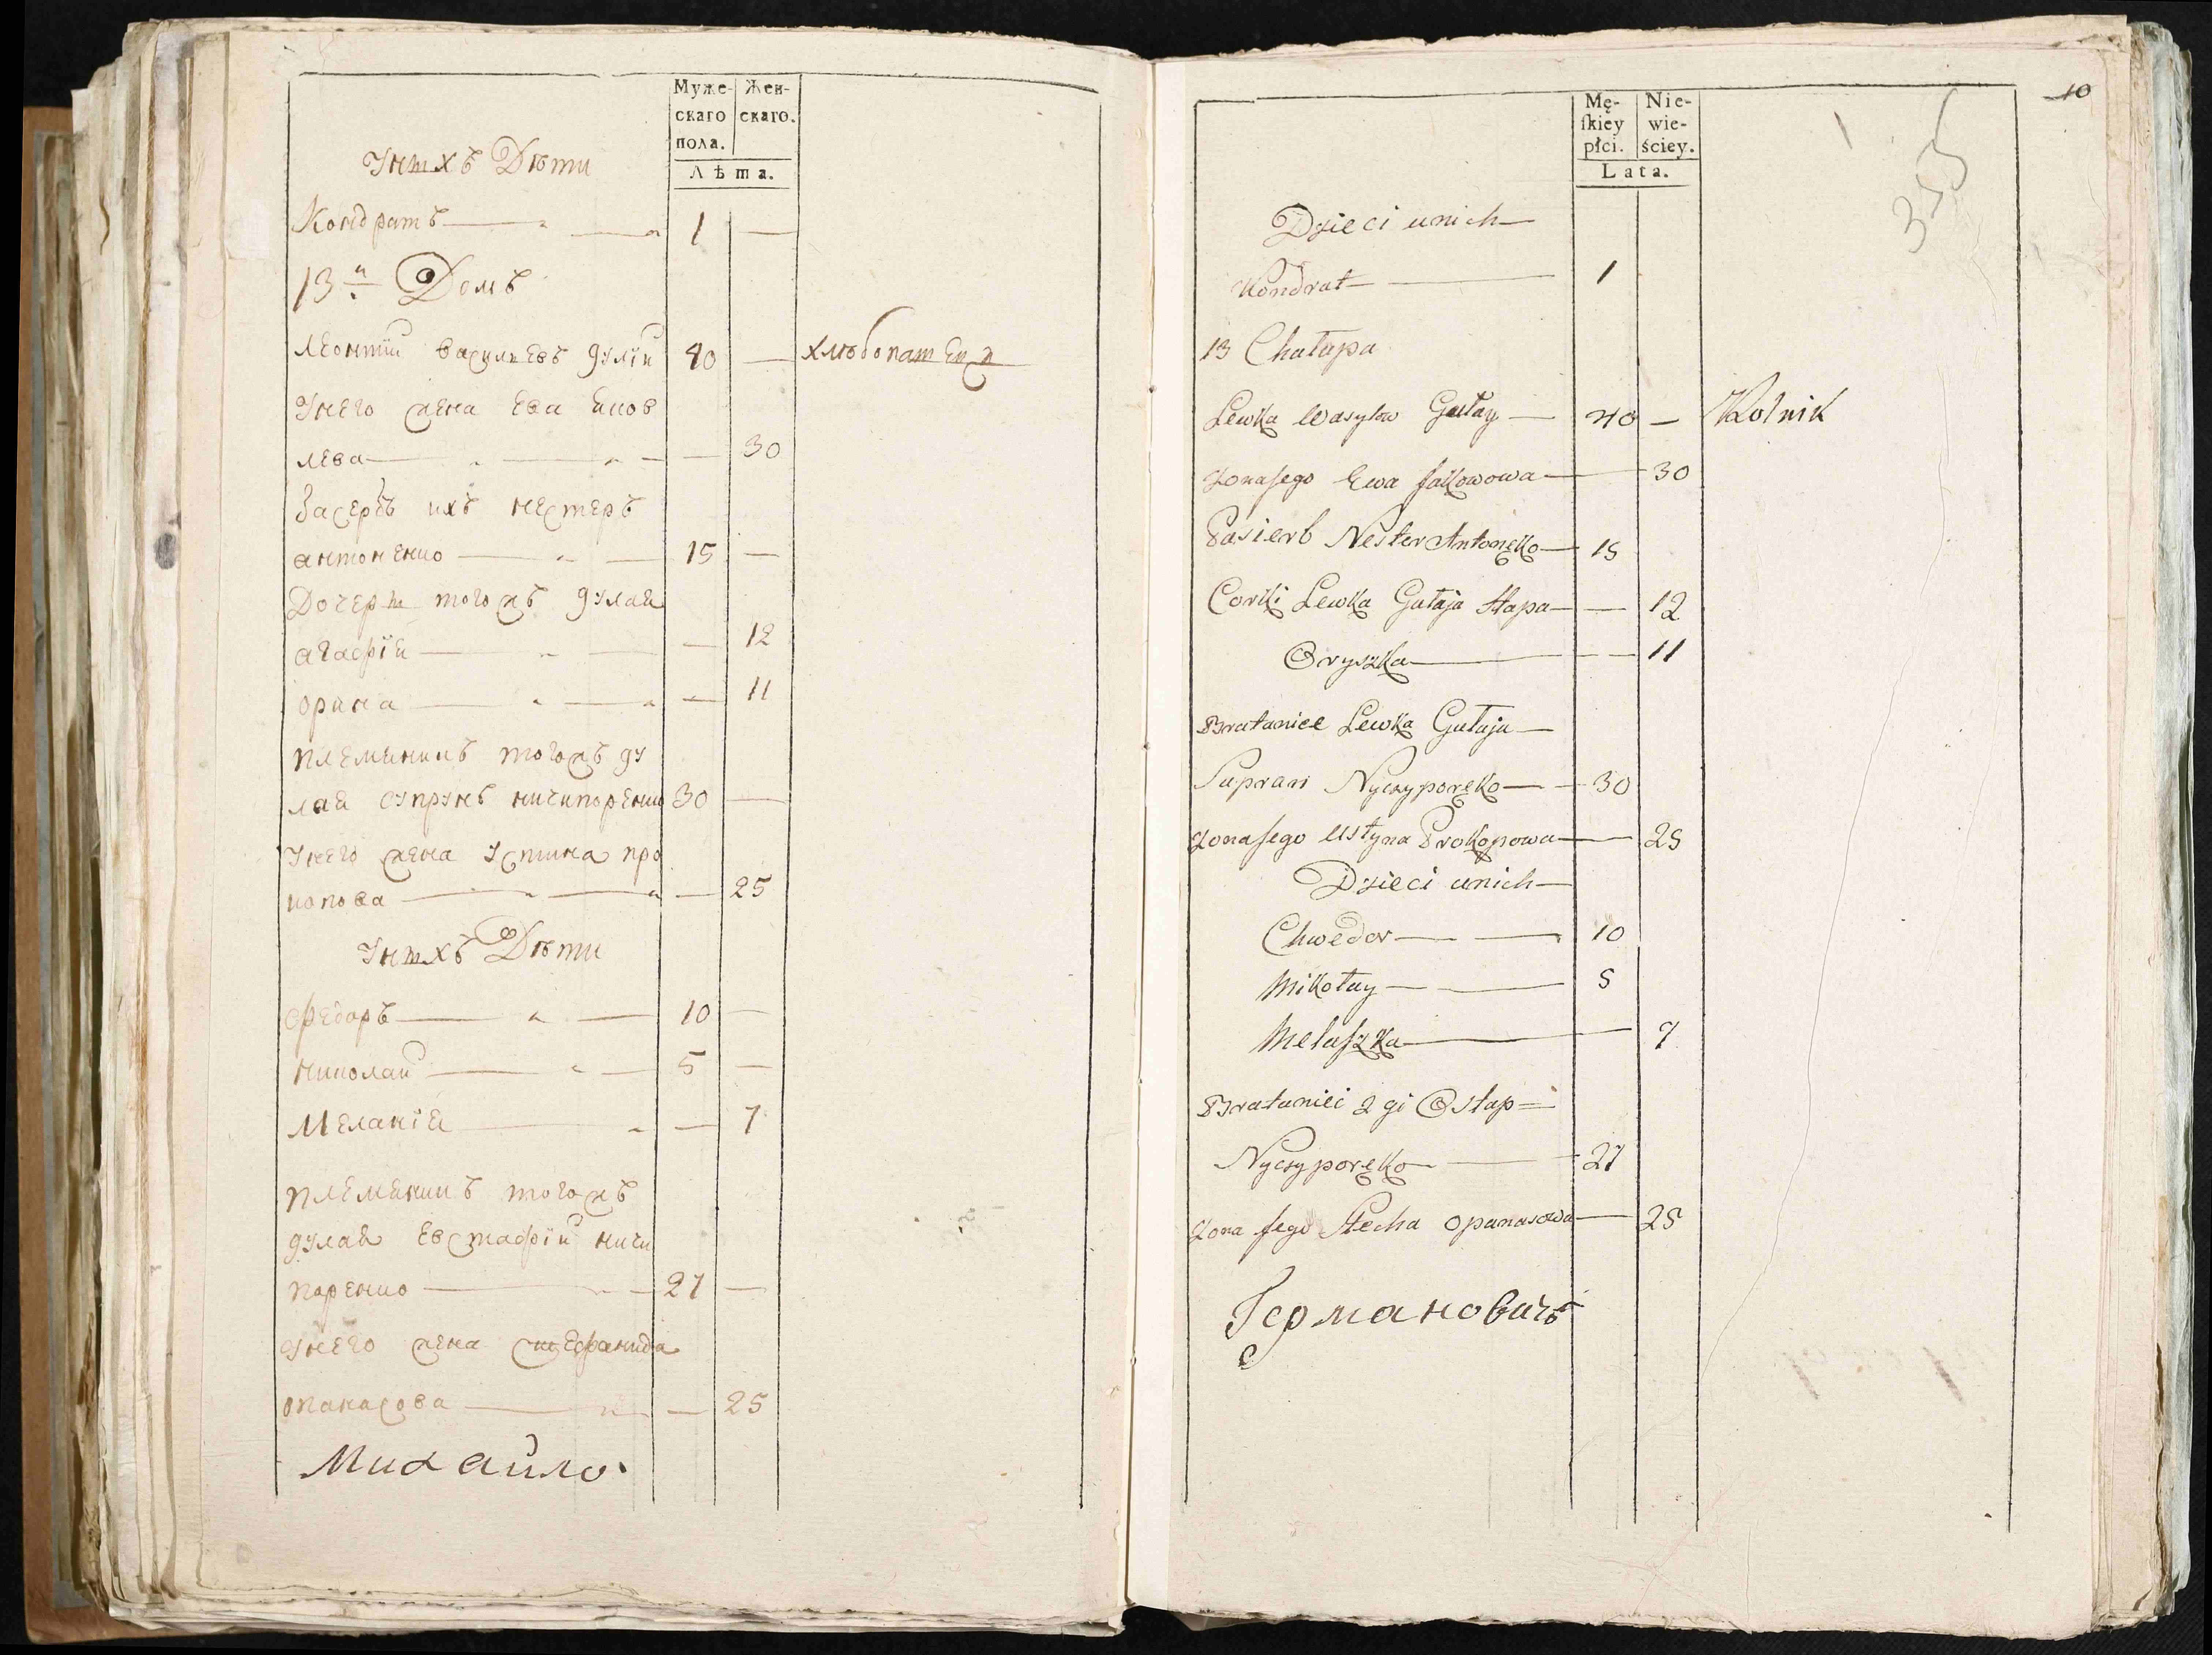 Муже-
скаго
пола.
Жен-
скаго.
Лѣта.
У нихъ Дѣти
Кондратъ 1 —
13й Домъ
Леонтий Василевъ Гулай 40 — хлѣбопашецъ
У него жена Ева Яков
лева — 30
Пасербъ ихъ Нестеръ
Антоненко 15 —
Дочери тогожъ Гулая
Агафия — 12
Орина — 11
Племяникъ тогожъ Гу
лая Супрунъ Ничипоренко 30 —
У него жена Устина Про
копова — 25
У нихъ Дѣти
Федоръ 10 —
Николай 5 —
Мелания — 7
Племяникъ тогожъ
Гулая Евстафий Ничи
поренко 27 —
У него жена Стефанида
Опанасова — 25
Михайло
10
355
Mę-
skiey
płci.
Nie-
wie-
ściey.
Lata.
Dzieci u nich
Kondrat 1
13 Chałupa
Lewka Wasylow Gułay 40 — Rolnik
Zona jego Ewa Jakowowa 30
Pasierb Nester Antonęko 15
Corki Lewka Gułaja Hapa — 12
Oryszka — 11
Brataniec Lewka Gułaja
Supran Nyczyporęko 30
Zona jego Ustyna Prokopowa 25
Dzieci u nich
Chwedor 10
Mikołay 5
Melaszka 7
Brataniec 2gi Ostap
Nyczyporęko 27
Zona jego Stecha Opanasowa 25
Германовичъ